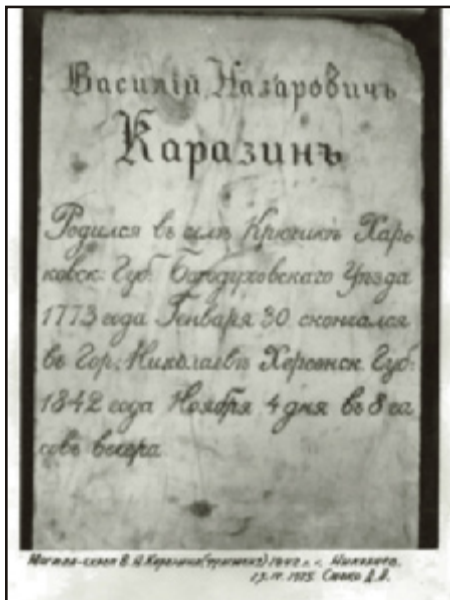 Василій Назаровичъ
Каразинъ
Родился въ селѣ Крючикѣ Харь
ковск: Губ: Богодуховскаго Уѣзда
1773 года Генваря 30 скончался
въ Гор: Николаевѣ Херсонск. Губ:
1842 года Ноября 4 дня въ 8 ча
совъ вечера
В. Н. Каразина 1842 г. г. Николаев.